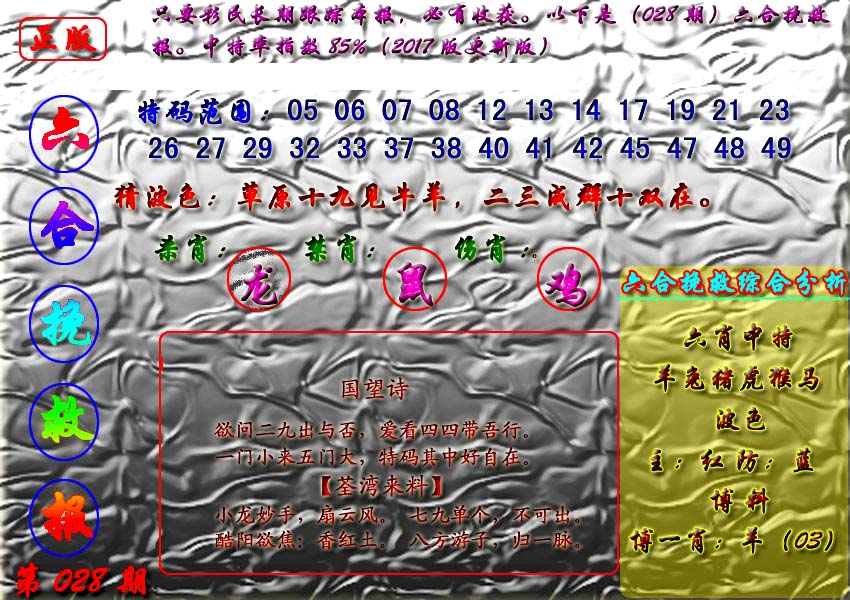 只要彩民长期跟踪本报，必有收获。以下是（028期）六合挽救
报。中特率指数85%（2017版更新版）
正版
六
合
挽
救
报
第028期
特码范围：05 06 07 08 12 13 14 17 19 21 23
26 27 29 32 33 37 38 40 41 42 45 47 48 49
猜波色：草原十九见牛羊，二三成群十双在。
杀肖：龙 禁肖：鼠 伤肖：鸡
国望诗
欲问二九出与否，爱看四四带吾行。
一门小来五门大，特码其中好自在。
【荃湾来料】
小龙妙手，扇云风。 七九单个，不可出。
酷阳欲焦：香红土。 八方游子，归一脉。
六合挽救综合分析
六肖中特
羊兔猪虎猴马
波色
主：红防：蓝
博料
博一肖：羊（03）